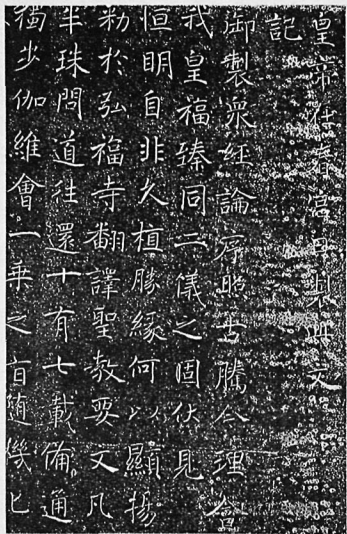 皇帝在春宮日製此文
記
御製衆經論序照古騰今理含
我皇福臻同二儀之固伏見
恒明自非久植勝緣何以顯揚
勅於弘福寺翻譯聖教要文凡
半珠問道往還十有七載備通
獨步伽維會一乘之旨隨機化